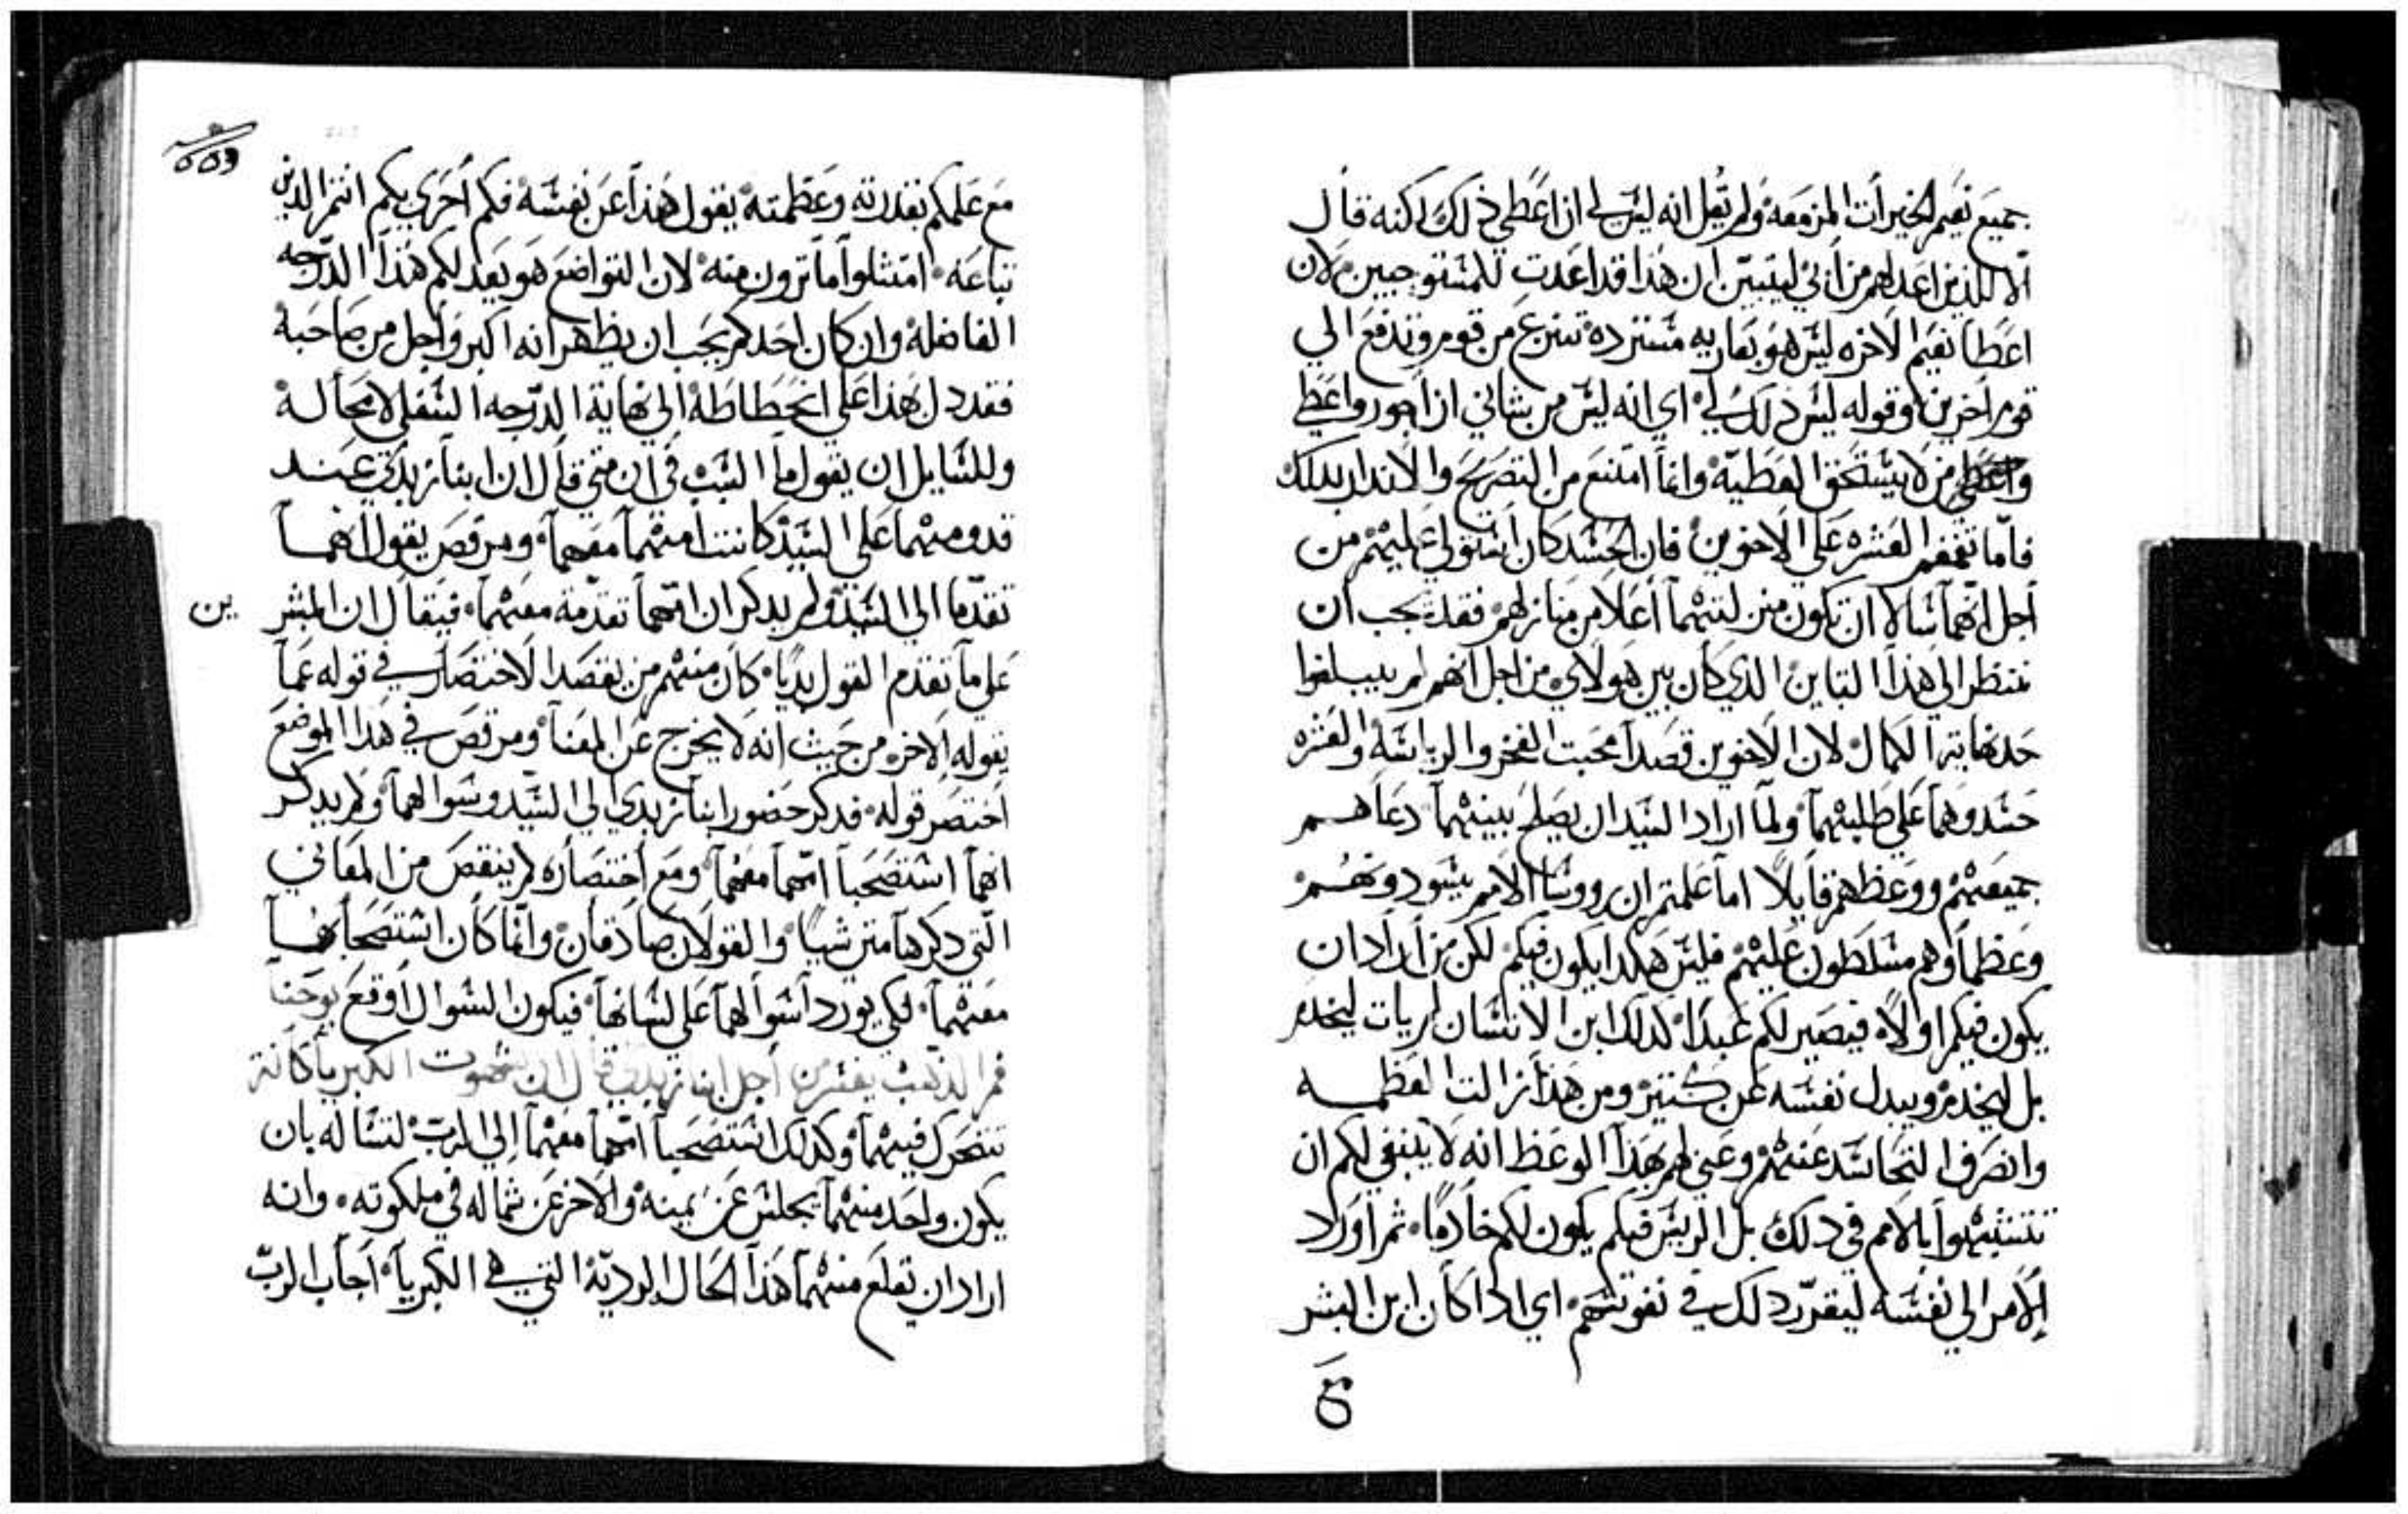 جميع نعيم الخيرات المزمعه ولم تقل انه ليس لي ان اعطي ذلك لكنه قال
الا للذين اعد لهم من ابي ليتبين ان هذا قد اعدت للمستوجبين لان
اعطا نعيم الاخره ليس هو بعاريه مسترده تنزع من قوم وتدفع الي
قوم اخرين وقوله ليس ذلك لي اي انه ليس من شاني ان اجور واعطي
واعطي من لا يستحق العطيه وانما امتنع من التصريح والاندار بدلك
فاما تقمقم العشره علي الاخوين فان الحسد كان استولي عليهم من
اجل انهما سالا ان تكون منزلتهما اعلا من منازلهم فقد يجب ان
ننظر الي هذا التباين الدي كان بين هولاي من اجل انهم لم يبلغوا
حد نهاية الكمال لان الاخوين قصدا محبت الفخر والرياسه والعشره
حسدوهما علي طلبهما ولما اراد السيد ان يصلح بينهما دعاهم
جميعهم ووعظهم قايلا اما علمتم ان رووسا الامم يسودونهم
وعظماوهم مسلطون عليهم فليس هكدا يكون فيكم لكن من اراد ان
يكون فيكم اولا فيصير لكم عبدا كدلك ابن الانسان لم يات ليخدم
بل ليخدم ويبدل نفسه عن كتير ومن هذا زالت العظمه
وانصرف التحاسد عنهم وعني لهم بهذا الوعظ انه لا ينبغي لكم ان
تتشبهوا بالامم في دلك بل الريس فيكم يكون لكم خادما ثم اورد
الامر الي نفسه ليقرر دلك في نفوسهم اي ادا كان ابن البشر
مع
٥٥٩
مع علمكم بقدرته وعظمته يقول هذا عن نفسه فكم احري بكم انتم الدين
تباعه امتثلوا ما ترون منه لان التواضع هو يعد لكم هذا الدرجه
الفاضله وان كان احدكم يحب ان يظهر انه اكبر واجل من صاحبه
فقد دل هذا علي انحطاطه الي نهاية الدرجه السفلي لا محاله
وللسايل ان يقول ما السبب في ان متي قال ان ابنا زبدي عند
قدومهما علي السيد كانت امهما معهما ومرقص يقول انهما
تقدما الي السيد ولم يدكر ان امهما تقدمة معهما فيقال ان المبشر
ين
علي ما تقدم القول بديا كان منهم من يقصد الاختصار في قوله عما
يقوله الاخر من حيث انه لا يخرج عن المعنا ومرقص في هدا الموضع
اختصر قوله فدكر حضور ابنا زبدي الي السيد وسوالهما ولم يدكر
انهما استصحبا امهما معهما ومع اختصاره لم ينقص من المعاني
التي دكرها متي شيا والقولان صادقان وانما كان استصحابها
معهما لكي يورد اسوالهما علي لسانها فيكون السوال اوقع يوحنا
فم الدهب يفسر من اجل ابنا زبدي قال ان شهوت الكبريا كانة
تتحرك فيهما وكدلك استصحبا امهما معهما الي الرب لتساله بان
يكون واحد منهما يجلس عن يمينه والاخر عن شماله في ملكوته وانه
اراد ان تقلع منهما هذا الحال الرديه التي هي الكبريا اجاب الرب